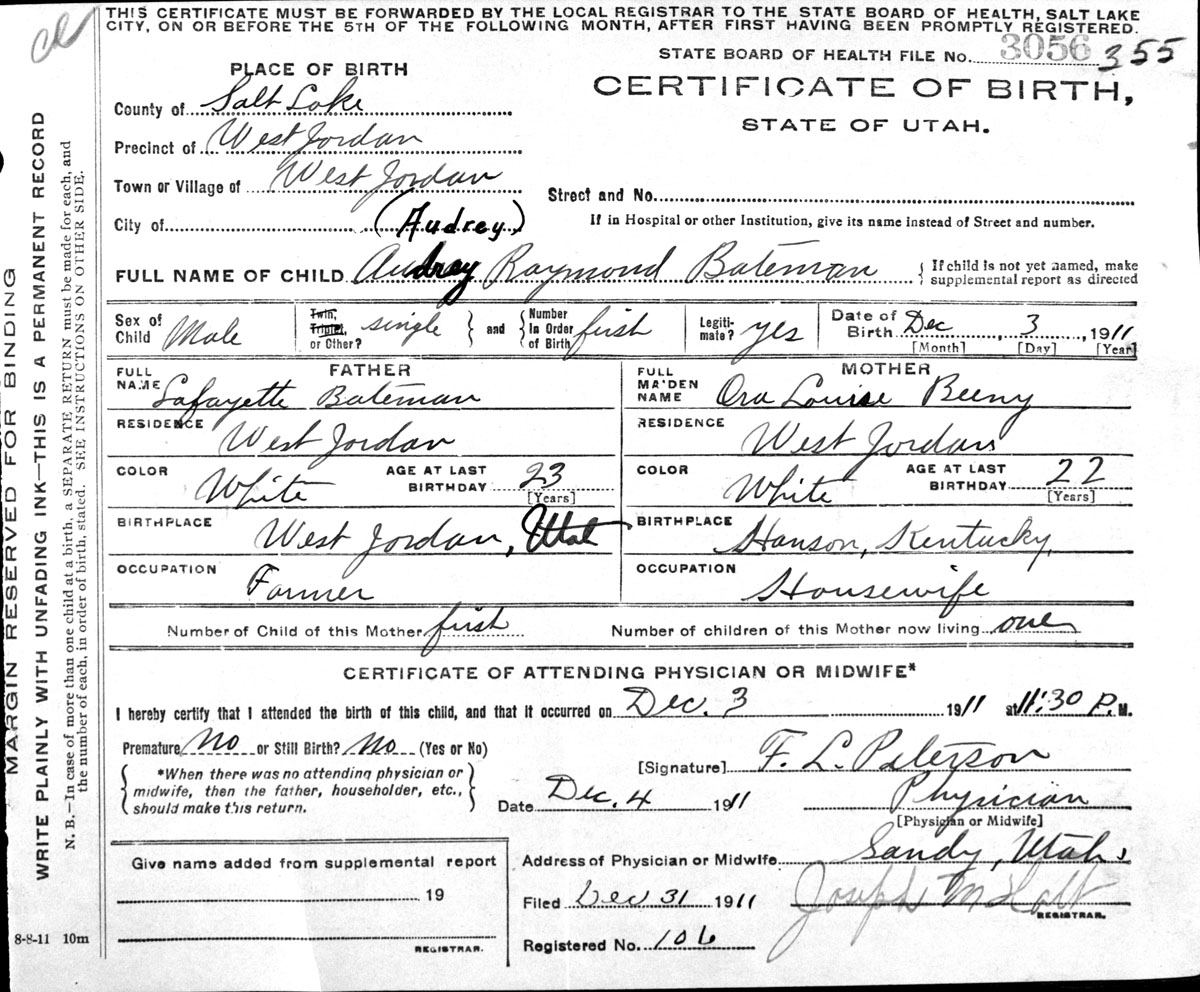 THIS CERTIFICATE MUST BE FORWARDED BY THE LOCAL REGISTRAR TO THE STATE BOARD OF HEALTH, SALT LAKE
CITY, ON OR BEFORE THE 5TH OF THE FOLLOWING MONTH, AFTER FIRST HAVING BEEN PROMPTLY REGISTERED.
STATE BOARD OF HEALTH FILE No. 3056 355
PLACE OF BIRTH
CERTIFICATE OF BIRTH,
STATE OF UTAH.
County of Salt Lake
Precinct of West Jordan
Town or Village of West Jordan
Street and No.
City of
(Audrey)
If in Hospital or other Institution, give its name instead of Street and number.
FULL NAME OF CHILD Audray Raymond Bateman
{ If child is not yet named, make
supplemental report as directed
Sex of Child Male
Twin, Triplet, or Other? single } and { Number In Order of Birth first
Legiti-mate? yes
Date of Birth Dec 3, 1911
[Month] [Day] [Year]
FATHER
MOTHER
FULL NAME Lafayette Bateman
FULL MAIDEN NAME Ora Louise Beeny
RESIDENCE West Jordan
RESIDENCE West Jordan
COLOR White AGE AT LAST BIRTHDAY 23 [Years]
COLOR White AGE AT LAST BIRTHDAY 22 [Years]
BIRTHPLACE West Jordan, Utah
BIRTHPLACE Hanson, Kentucky,
OCCUPATION Farmer
OCCUPATION Housewife
Number of Child of this Mother first
Number of children of this Mother now living one
CERTIFICATE OF ATTENDING PHYSICIAN OR MIDWIFE*
I hereby certify that I attended the birth of this child, and that it occurred on Dec. 3 1911 at 11:30 P. M.
Premature No or Still Birth? No (Yes or No)
{ *When there was no attending physician or
midwife, then the father, householder, etc.,
should make this return. }
[Signature] F. L. Peterson
Date Dec. 4 1911
Physician
[Physician or Midwife]
Give name added from supplemental report
19
REGISTRAR.
Address of Physician or Midwife Sandy, Utah.
Filed Dec 31 1911 Joseph M Holt
REGISTRAR.
Registered No. 106
8-8-11 10m
MARGIN RESERVED FOR BINDING
WRITE PLAINLY WITH UNFADING INK—THIS IS A PERMANENT RECORD
N. B.—In case of more than one child at a birth, a SEPARATE RETURN must be made for each, and
the number of each, in order of birth, stated. SEE INSTRUCTIONS ON OTHER SIDE.